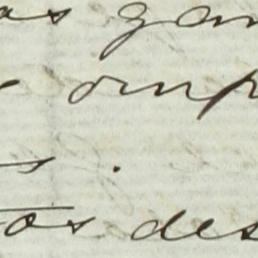 as gan
r omp
s.
tos des